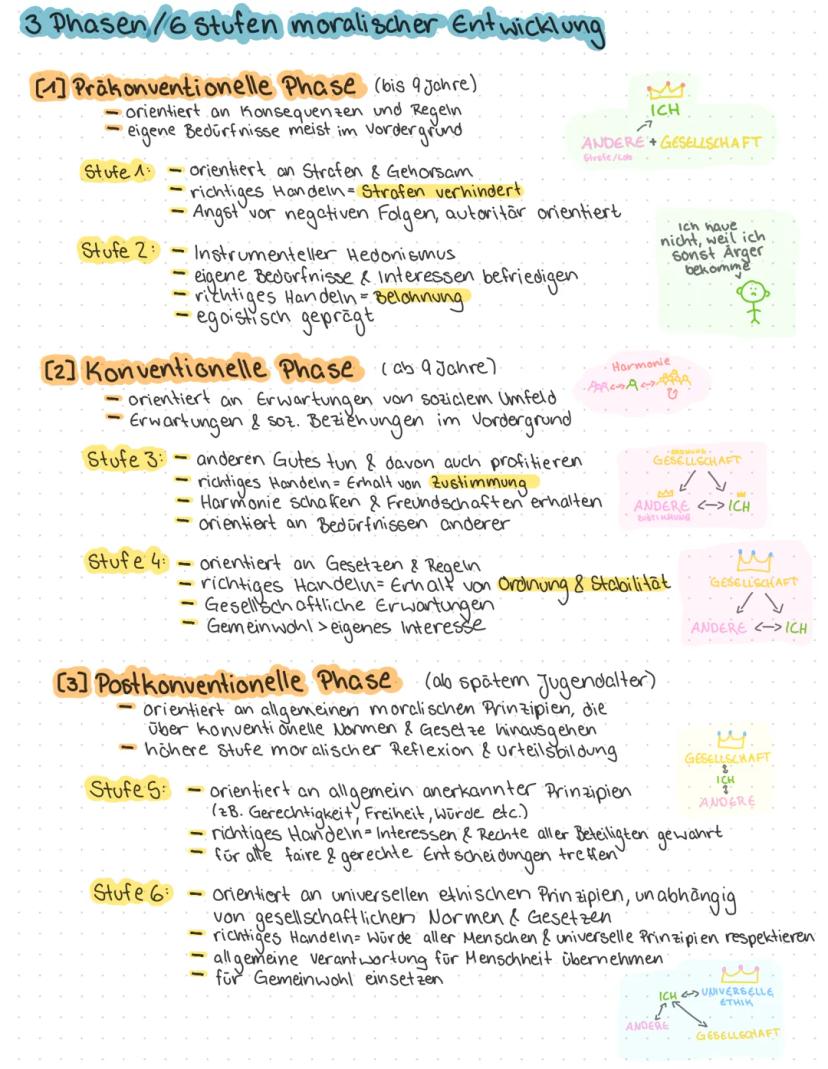 3 Phasen/6 Stufen moralischer Entwicklung
[1] Präkonventionelle Phase (bis 9 Jahre)
– orientiert an Konsequenzen und Regeln
– eigene Bedürfnisse meist im Vordergrund
ICH
ANDERE + GESELLSCHAFT
Strafe/Lob
Stufe 1: – orientiert an Strafen & Gehorsam
– richtiges Handeln = Strafen verhindert
– Angst vor negativen Folgen, autoritär orientiert
Stufe 2: – Instrumenteller Hedonismus
– eigene Bedürfnisse & Interessen befriedigen
– richtiges Handeln = Belohnung
– egoistisch geprägt
Ich haue
nicht, weil ich
sonst Ärger
bekomme
[2] Konventionelle Phase (ab 9 Jahre)
– orientiert an Erwartungen von sozialem Umfeld
– Erwartungen & soz. Beziehungen im Vordergrund
Harmonie
Stufe 3: – anderen Gutes tun & davon auch profitieren
– richtiges Handeln = Erhalt von Zustimmung
– Harmonie schaffen & Freundschaften erhalten
– orientiert an Bedürfnissen anderer
GESELLSCHAFT
ANDERE <–> ICH
Stufe 4: – orientiert an Gesetzen & Regeln
– richtiges Handeln = Erhalt von Ordnung & Stabilität
– Gesellschaftliche Erwartungen
– Gemeinwohl > eigenes Interesse
GESELLSCHAFT
ANDERE <–> ICH
[3] Postkonventionelle Phase (ab spätem Jugendalter)
– orientiert an allgemeinen moralischen Prinzipien, die
über konventionelle Normen & Gesetze hinausgehen
– höhere Stufe moralischer Reflexion & Urteilsbildung
GESELLSCHAFT
ICH
ANDERE
Stufe 5: – orientiert an allgemein anerkannter Prinzipien
(zB. Gerechtigkeit, Freiheit, Würde etc.)
– richtiges Handeln = Interessen & Rechte aller Beteiligten gewahrt
– für alle faire & gerechte Entscheidungen treffen
Stufe 6: – orientiert an universellen ethischen Prinzipien, unabhängig
von gesellschaftlichen Normen & Gesetzen
– richtiges Handeln = Würde aller Menschen & universelle Prinzipien respektieren
– allgemeine Verantwortung für Menschheit übernehmen
– für Gemeinwohl einsetzen
ICH <–> UNIVERSELLE
ETHIK
ANDERE
GESELLSCHAFT